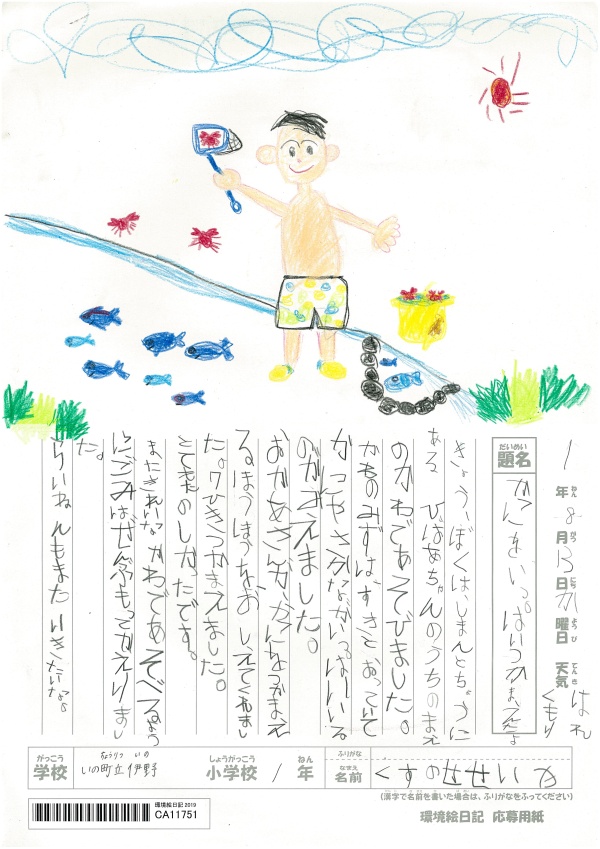 1年8月13日か曜日 天気 はれ くもり
ねん がつ にち ようび てんき
だいめい
題名 かにをいっぱいつかまえたよ
きょう、ぼくは、しまんとちょうに
ある ひばあちゃんのうちのまえ
のかわであそびました。
かものみずは、すきとおっていて
かにやさかながいっぱいいる
のがみえました。
おかあさんが、かにをつかまえ
るほうほうをおしえてくれまし
た。7ひきつかまえました。
とてもたのしかったです。
またきれいなかわであそべるよう
にごみはぜんぶもってかえりまし
た。
らいねんもまたいきたいな。
がっこう
学校
ちょうりつ いの
いの町立伊野
しょうがっこう
小学校
ねん
1年
ふりがな
なまえ
名前
くすのせせいや
(漢字で名前を書いた場合は、ふりがなをふってください)
環境絵日記2019
CA11751
環境絵日記 応募用紙